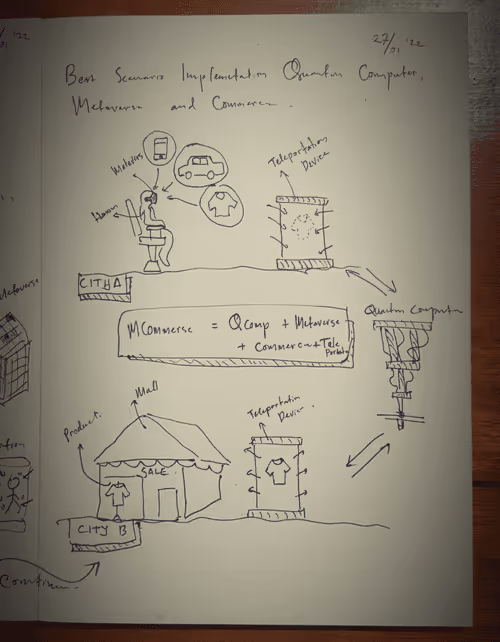 27/01 '22
Best Scenario Implemetation Quantum Computer,
Metaverse and Commerce.
Metavers
Teleportation
Device
Human
CITY A
Metaverse
Quantum Computer
MCommerse = Qcomp + Metaverse
+ Commerce + Tele
Portation
Mall
Product.
Teleportation
Device.
SALE
CITY B